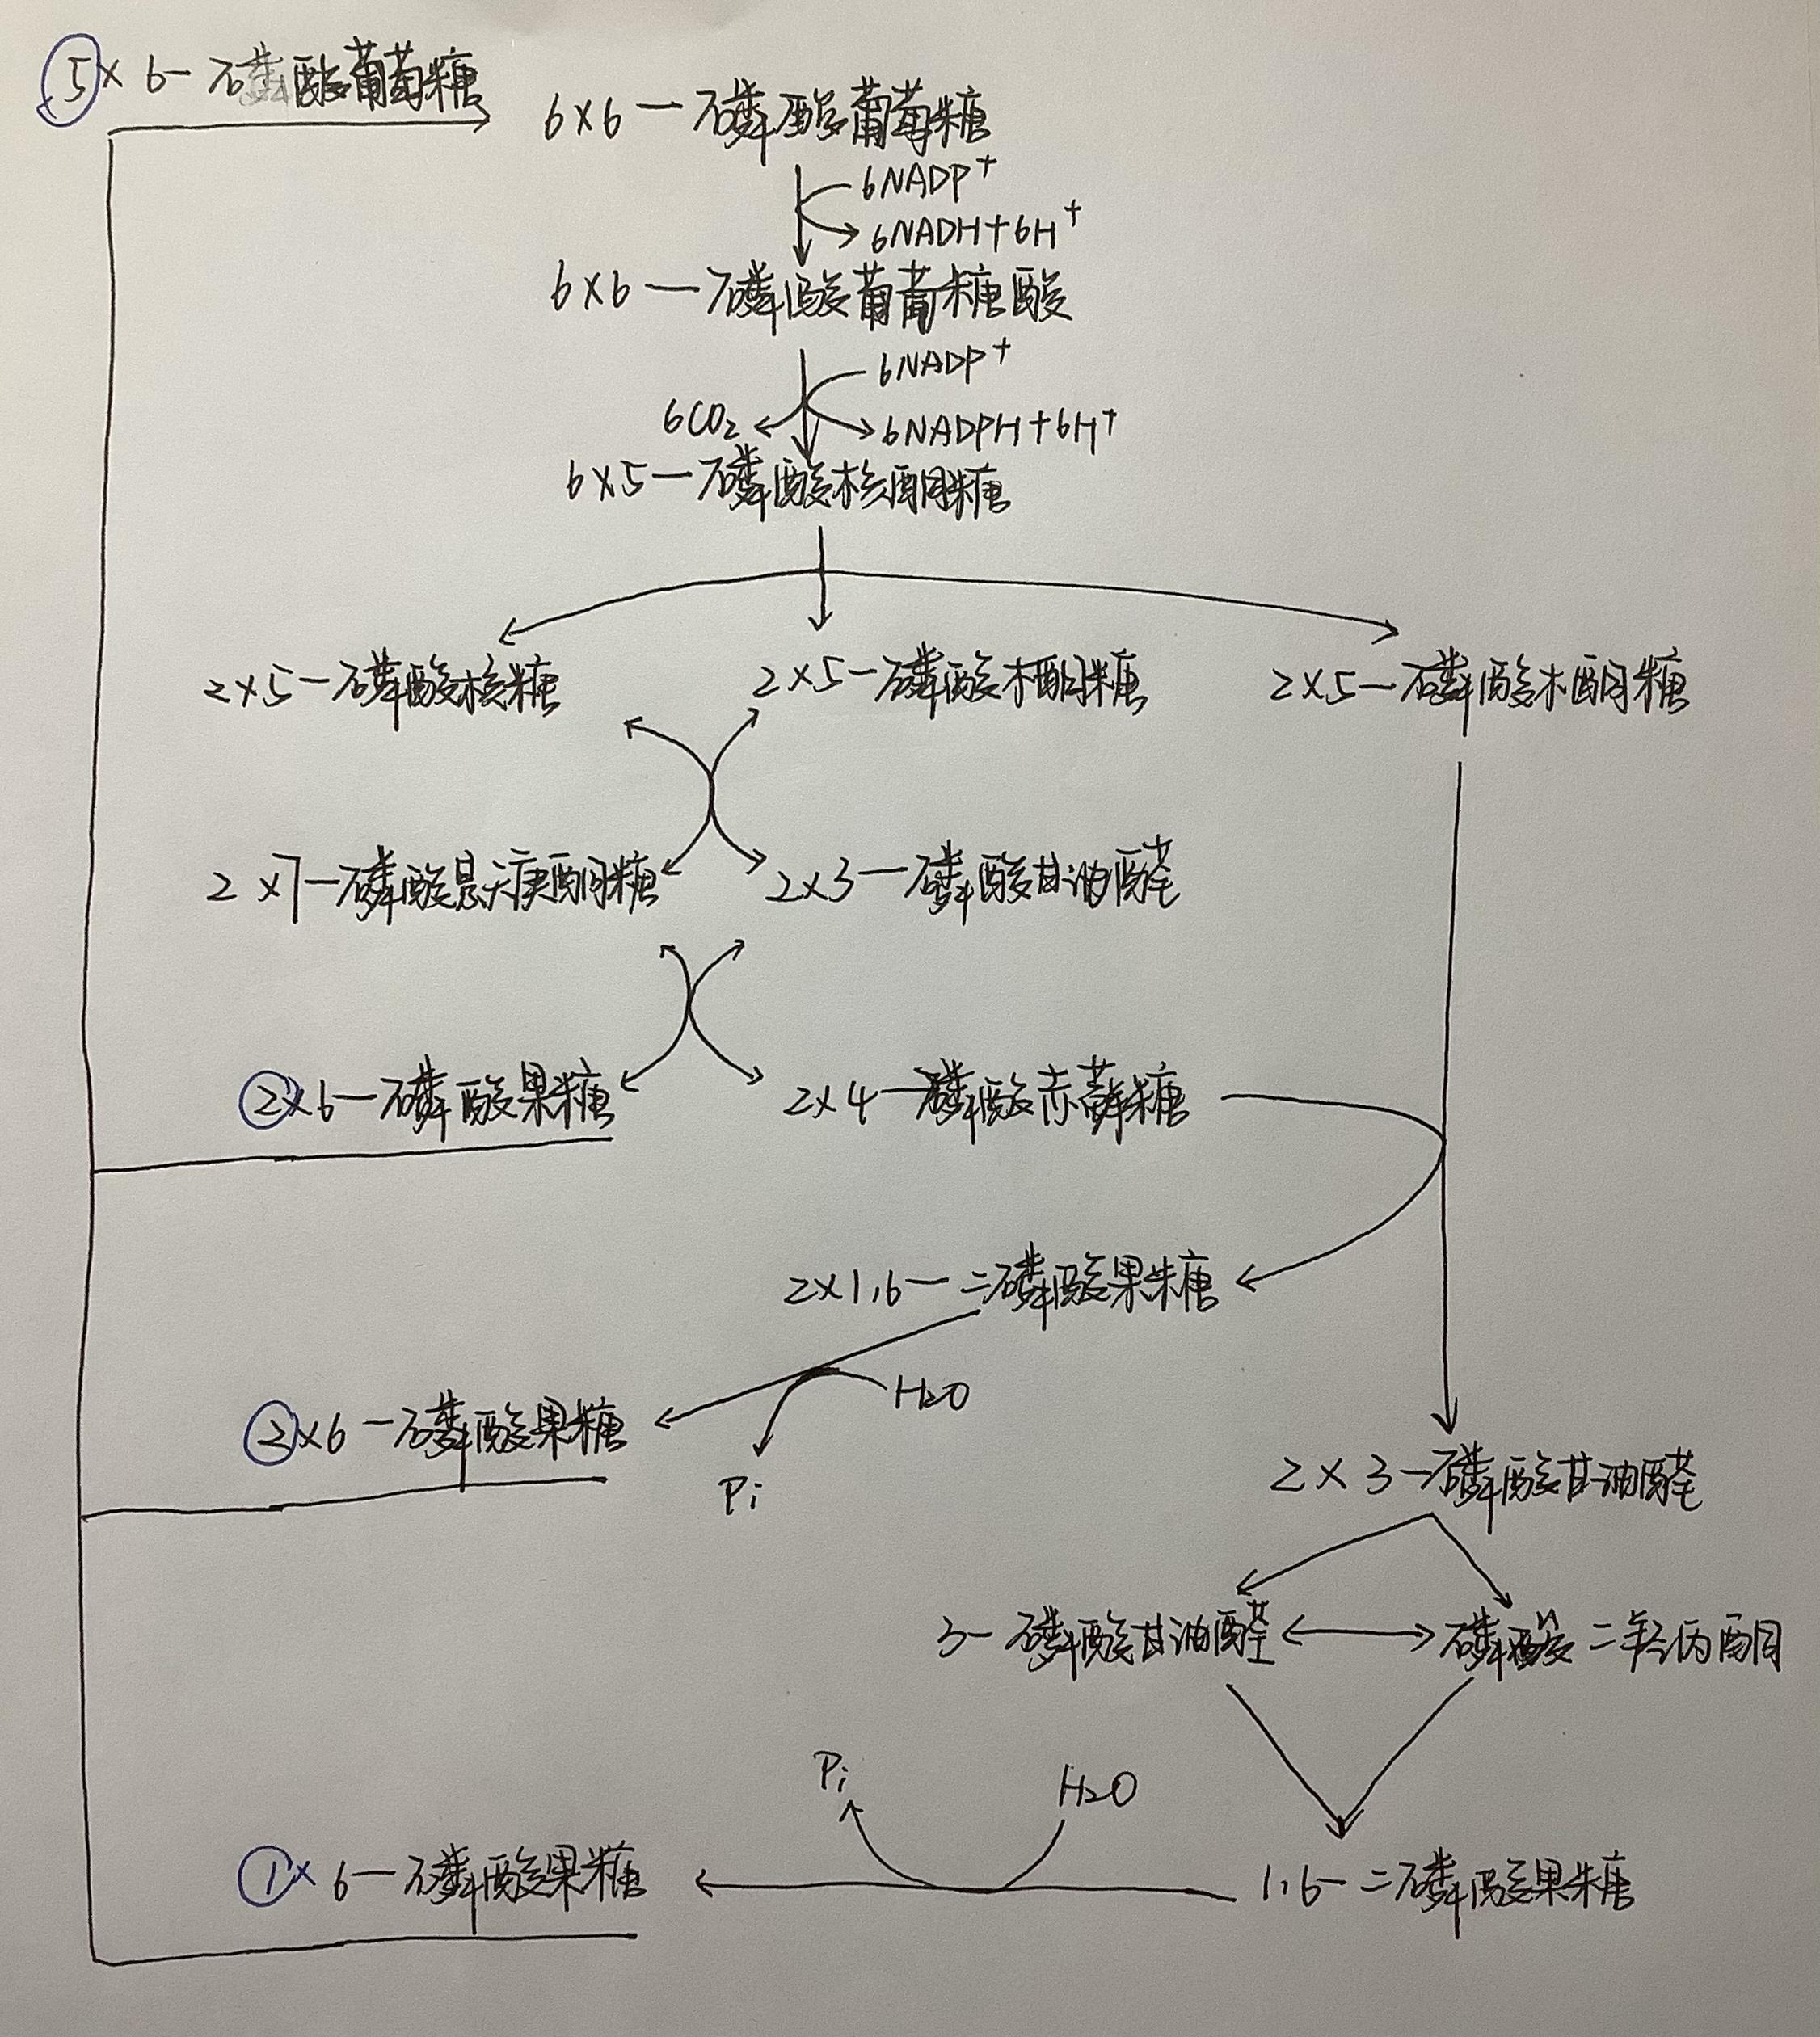 5×6—磷酸葡萄糖
6×6—磷酸葡萄糖
6NADP⁺
6NADH+6H⁺
6×6—磷酸葡萄糖酸
6NADP⁺
6CO₂
6NADPH+6H⁺
6×5—磷酸核酮糖
2×5—磷酸核糖
2×5—磷酸木酮糖
2×5—磷酸木酮糖
2×7—磷酸景天庚酮糖
2×3—磷酸甘油醛
2×6—磷酸果糖
2×4—磷酸赤藓糖
2×1,6—二磷酸果糖
H₂O
2×6—磷酸果糖
Pi
2×3—磷酸甘油醛
3—磷酸甘油醛
磷酸二羟丙酮
Pi
H₂O
1×6—磷酸果糖
1,6—二磷酸果糖